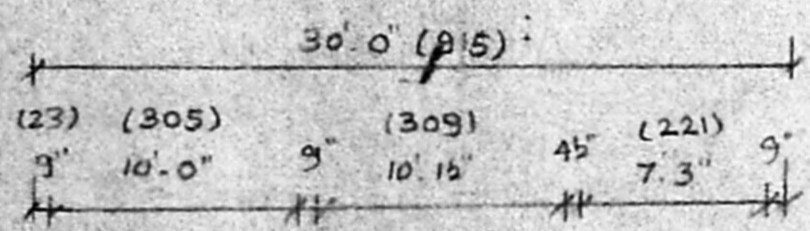 30'.0" (915)
(23) (305) (309) (221)
9" 10'-0" 9" 10'.1½" 4½" 7'.3" 9"